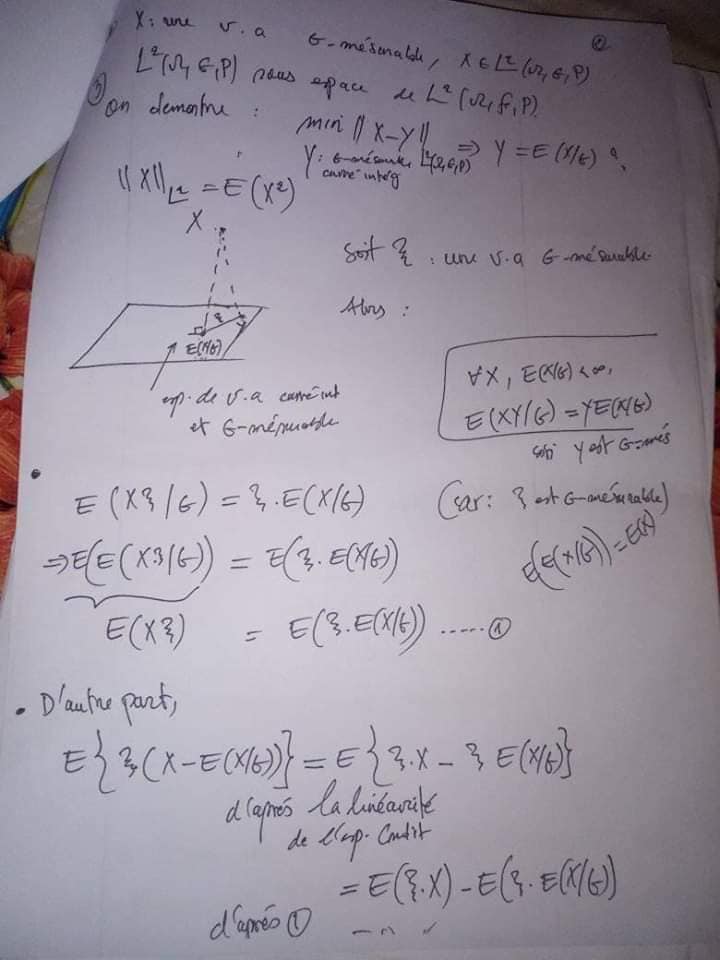 X: une v.a G-mésurable, X ∈ L²(Ω, G, P)
L²(Ω, G, P) sous espace de L²(Ω, F, P)
③ On démontre :
min ||X-Y|| ⇒ Y = E(X/G)
Y: G-mésurable L²(Ω,G,P)
carré intég
||X||_L² = E(X²)
X
Soit ξ : une v.a G-mésurable.
Alors :
ξ
E(X/G)
esp. de v.a carré int
et G-mésurable
∀X, E(X/G) < ∞,
E(XY/G) = Y E(X/G)
si Y est G-més
• E(Xξ/G) = ξ . E(X/G) (car: ξ est G-mésurable)
⇒ E(E(Xξ/G)) = E(ξ . E(X/G)) E(E(X/G)) = E(X)
E(Xξ) = E(ξ . E(X/G)) ..... ①
• D'autre part,
E{ξ(X - E(X/G))} = E{ξ.X - ξ E(X/G)}
d'après la linéarité
de l'esp. Condit
= E(ξ.X) - E(ξ. E(X/G))
d'après ①